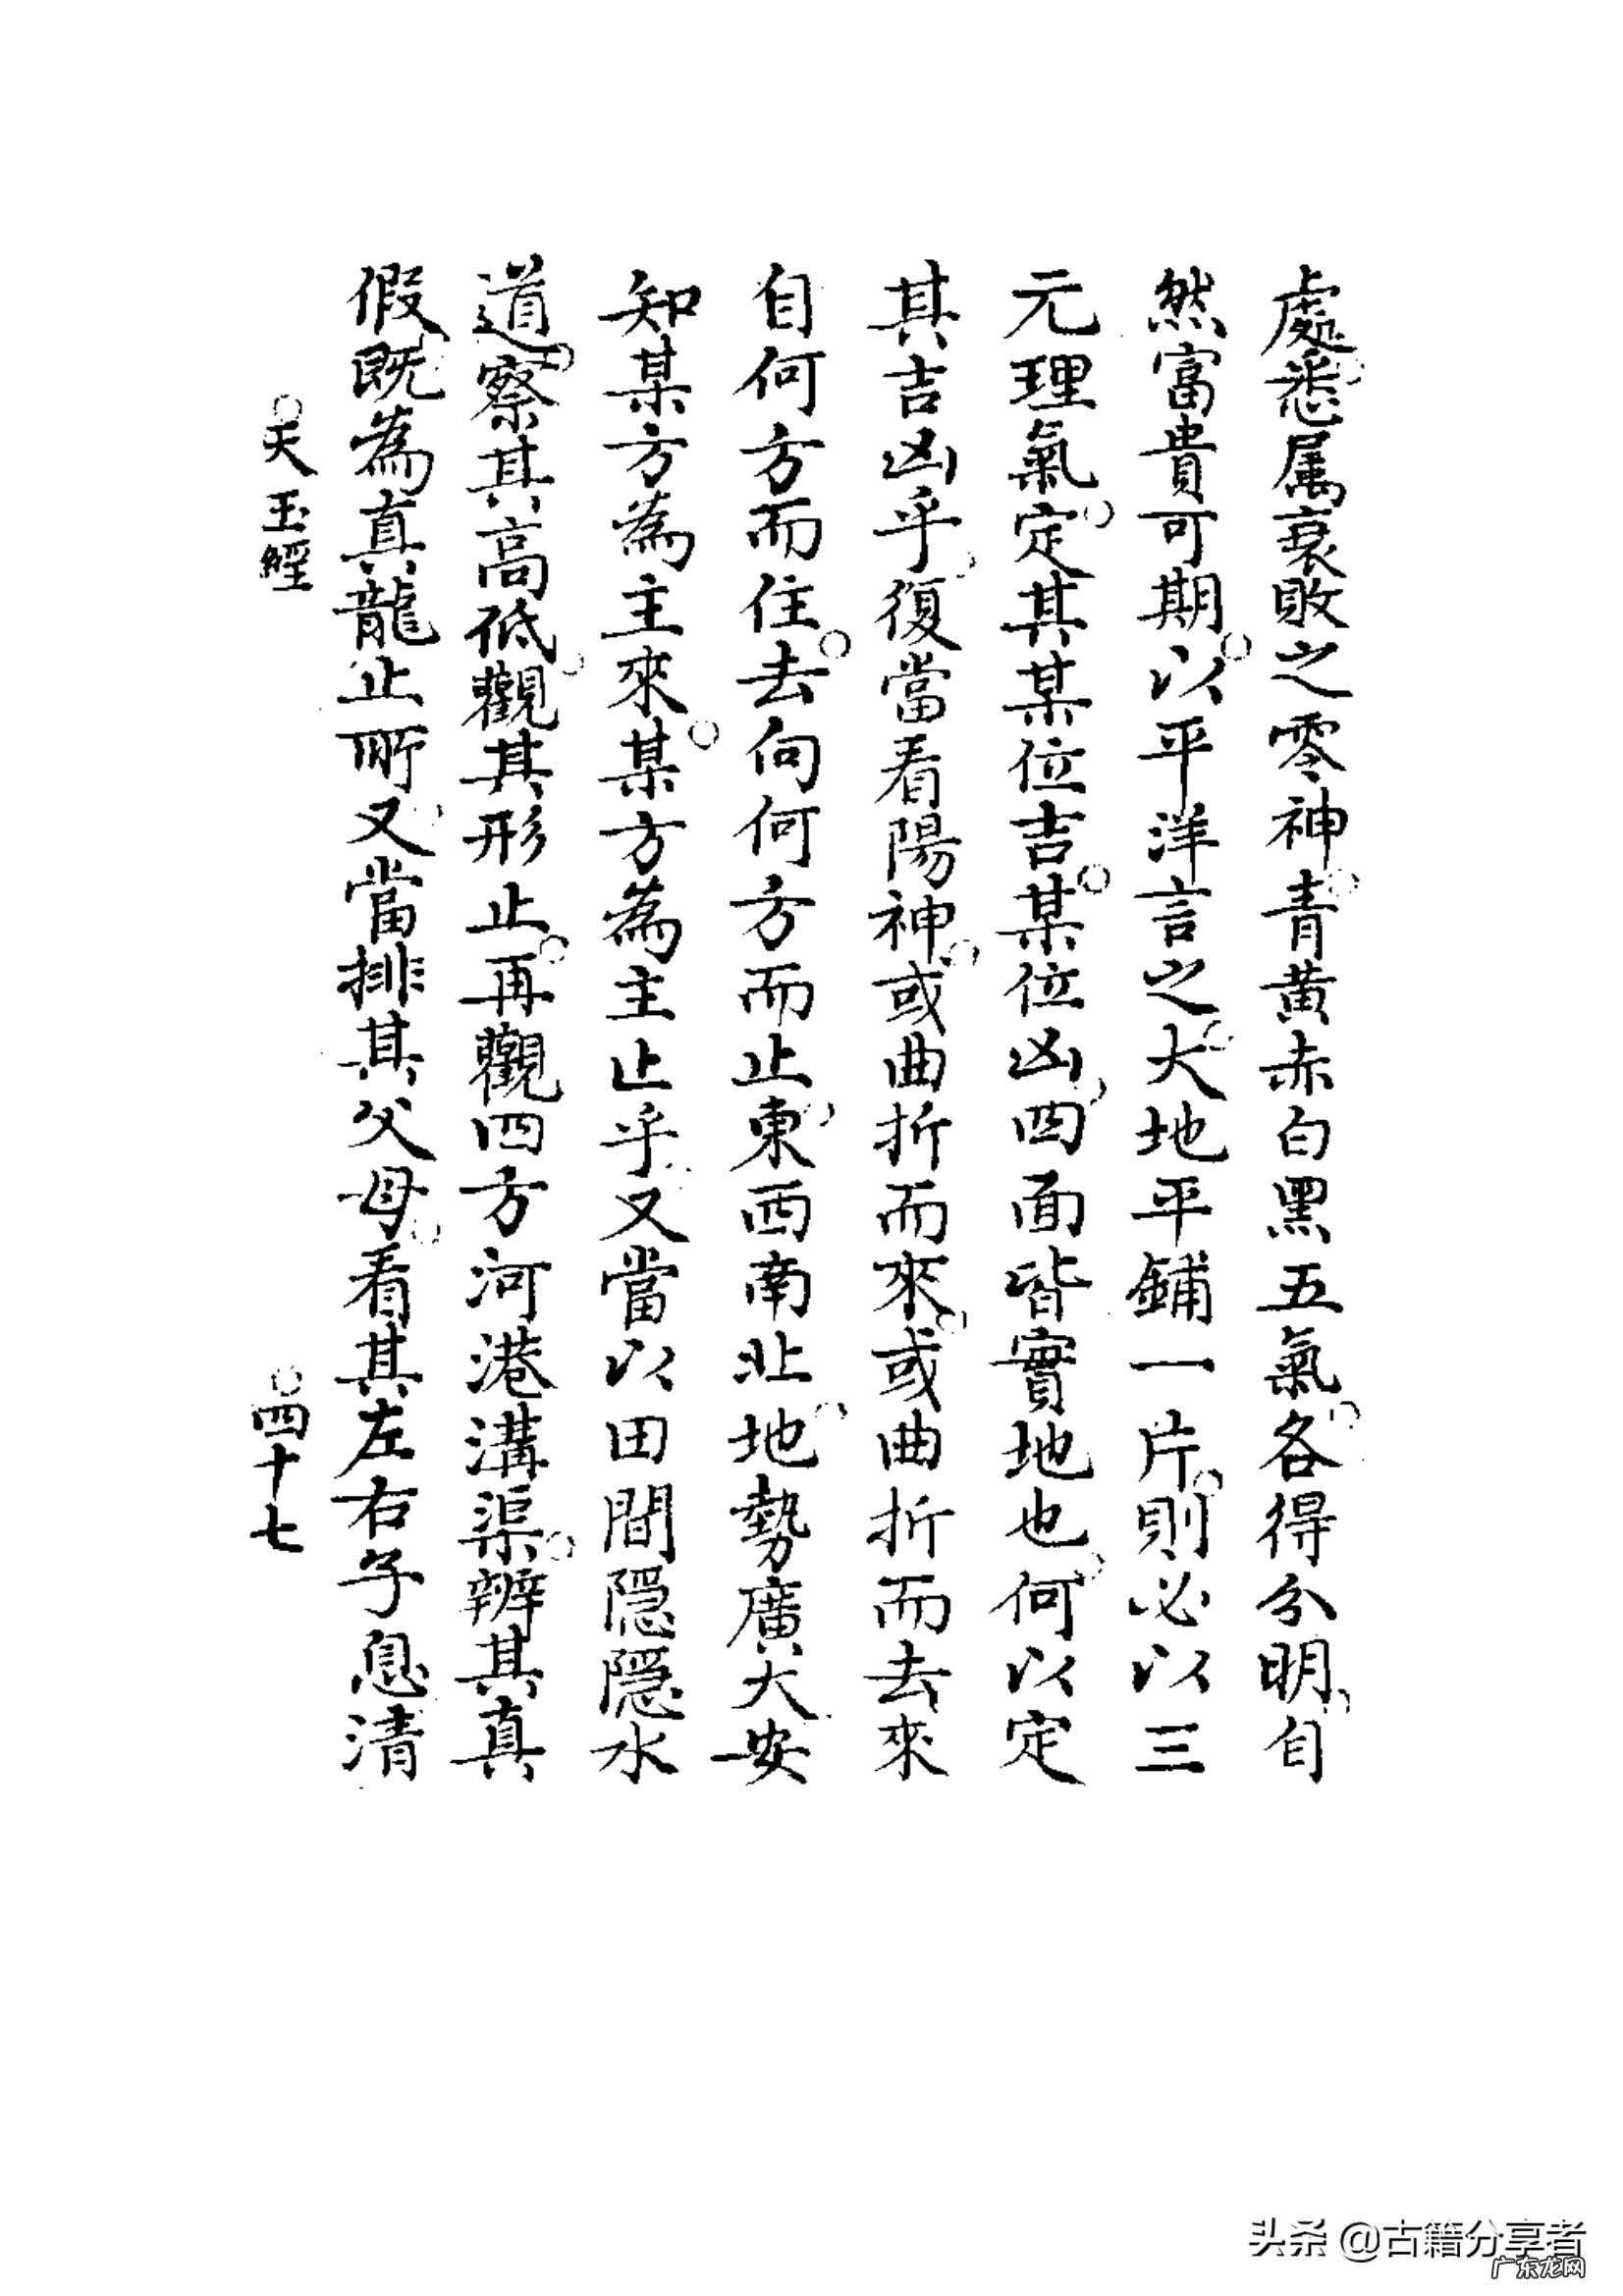 處悉属衰敗之零神青黄赤白黑五氣各得分明自
然富貴可期以平洋言之大地平鋪一片則必以三
元理氣定其某位吉某位凶四面皆實地也何以定
其吉凶乎復當看陽神或曲折而來或曲折而去來
自何方而住去向何方而止東西南北地勢廣大安
知某方為主來某方為主止乎又當以田間隱隱水
道察其高低觀其形止再觀四方河港溝渠辨其真
假既為真龍止所又當排其父母看其左右子息清
天玉經
四十七
头条 @古籍分享者
广东龙网